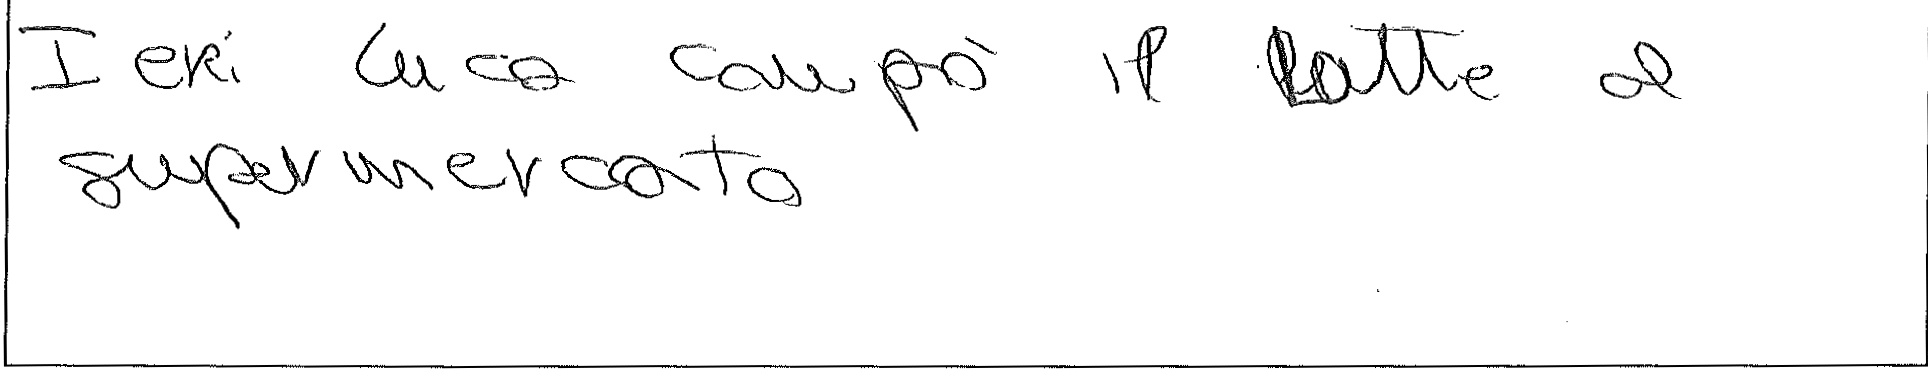 Ieri Luca compò il latte al
supermercato